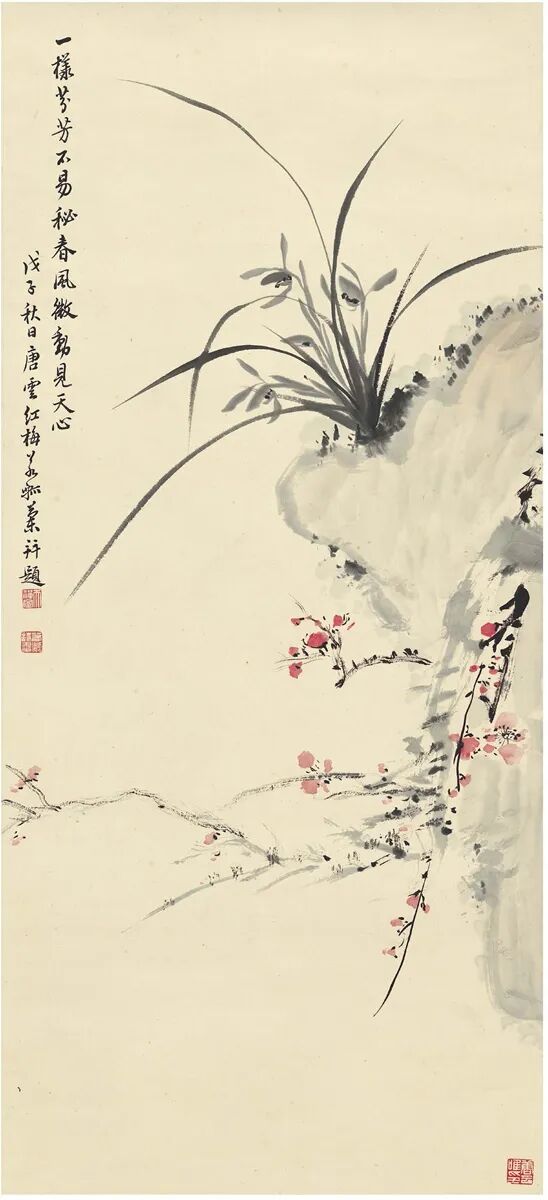 一樣芬芳不易秘春風微動見天心
戊子秋日唐雲紅梅若瓢蘭并題